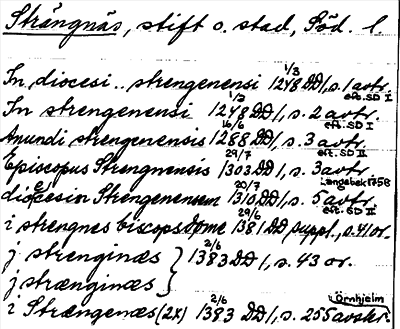 Strängnäs, stift o. stad, Söd. l.
In diocesi.. strengenensi 1/3 1248 DD 1, s. 1 avtr. eft. SD I
In strengenensi 1/3 1248 DD 1, s. 2 avtr. eft. SD I
Anundi strengenensis 16/6 1288 DD 1, s. 3 avtr. eft. SD II
Episcopus Strengnensis 29/7 1303 DD 1, s. 3 avtr. Langebek 1758
diocesin Strengenensem 20/7 1310 DD 1, s. 5 avtr. eft. SD II
i strengnes biscopsdøme 29/6 1381 DD suppl., s. 41 or.
j strenginæs } 2/6 1383 DD 1, s. 43 or.
j strænginæs }
i Strængenæs (2x) 2/6 1383 DD 1, s. 255 avskr. Örnhjelm